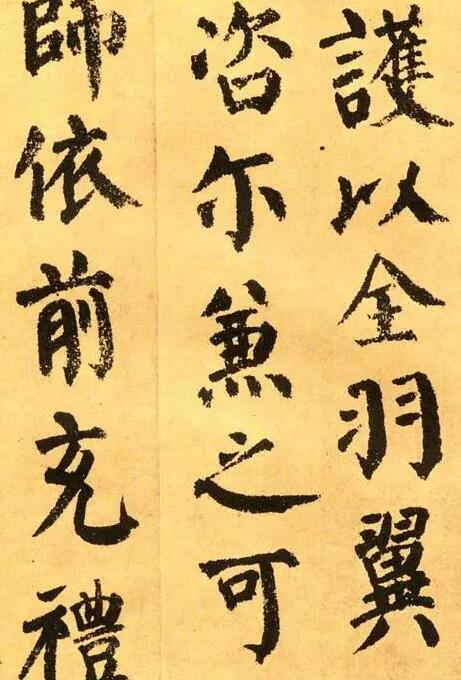 護以全羽翼
咨尔兼之可
師依前充禮